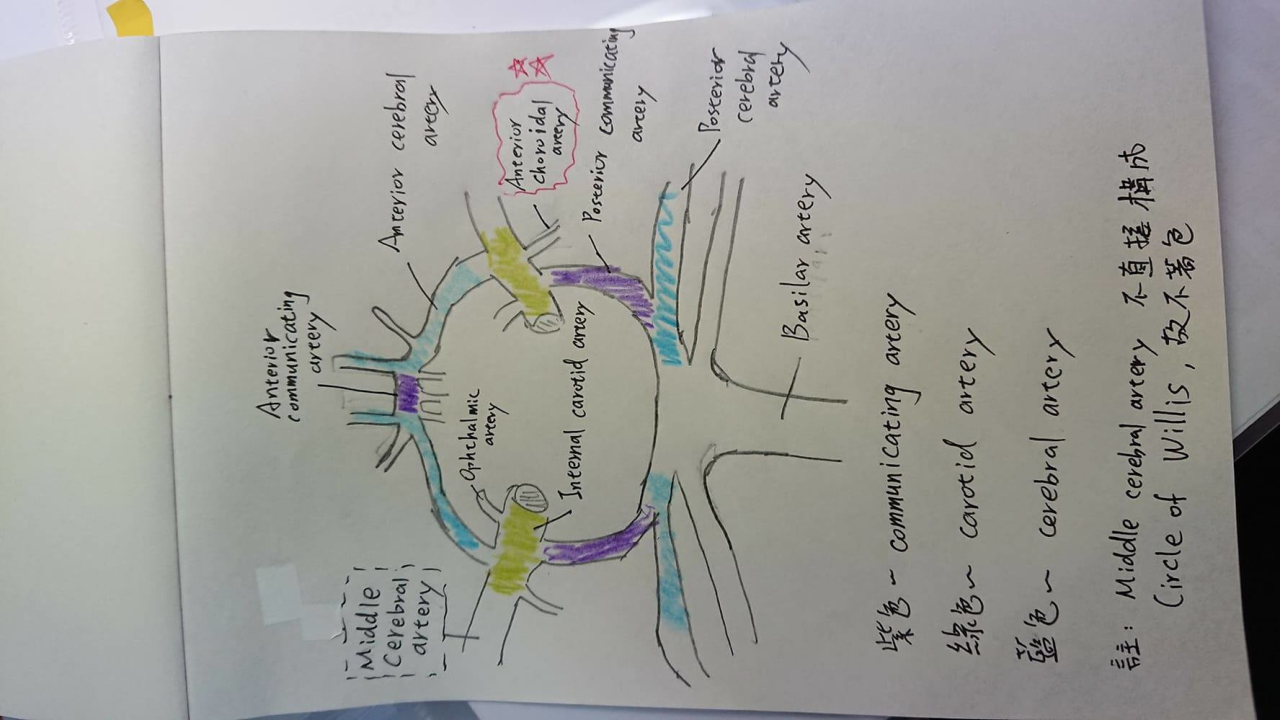 Anterior
communicating
artery
Anterior cerebral
artery
Anterior
choroidal
artery
Posterior communicating
artery
Posterior
cerebral
artery
Middle
Cerebral
artery
Ophthalmic
artery
Internal carotid artery
Basilar artery
紫色~ communicating artery
綠色~ carotid artery
藍色~ cerebral artery
註: Middle cerebral artery 不直接構成
Circle of Willis, 故不著色